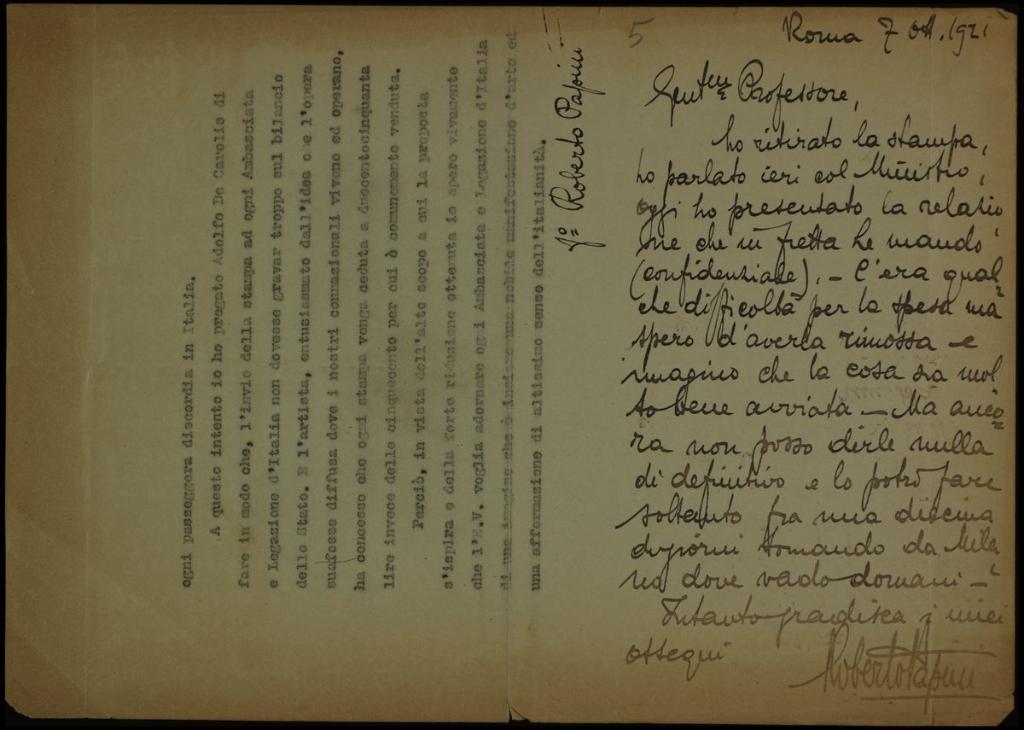 ogni passeggera discordia in Italia.
A questo intento io ho pregato Adolfo De Carolis di
fare in modo che, l'invio della stampa ad ogni Ambasciata
e Legazione d'Italia non dovesse gravar troppo sul bilancio
dello Stato. E l'artista, entusiasmato dall'idea che l'opera
sua fosse diffusa dove i nostri connazionali vivono ed operano,
ha concesso che ogni stampa venga ceduta a duecentocinquanta
lire invece delle cinquecento per cui è comunemente venduta.
Perciò, in vista dell'alto scopo a cui la proposta
s'ispira e della forte riduzione ottenuta io spero vivamente
che l'E.V. voglia adornare ogni Ambasciata e Legazione d'Italia
di una imagine che è insieme una nobile manifestazione d'arte ed
una affermazione di altissimo senso dell'italianità.
Fº Roberto Papini
5
Roma 7 ott. 1921
Gent.mo Professore,
ho ritirato la stampa,
ho parlato ieri col Ministro,
oggi ho presentato la relazio
ne che in fretta le mando
(confidenziale). - C'era qual=
che difficoltà per la spesa ma
spero d'averla rimossa - e
imagino che la cosa sia mol
to bene avviata - Ma anco=
ra non posso dirle nulla
di definitivo e lo potrò fare
soltanto fra una diecina
di giorni tornando da Mila
no dove vado domani -
Intanto gradisca i miei
ossequi
Roberto Papini